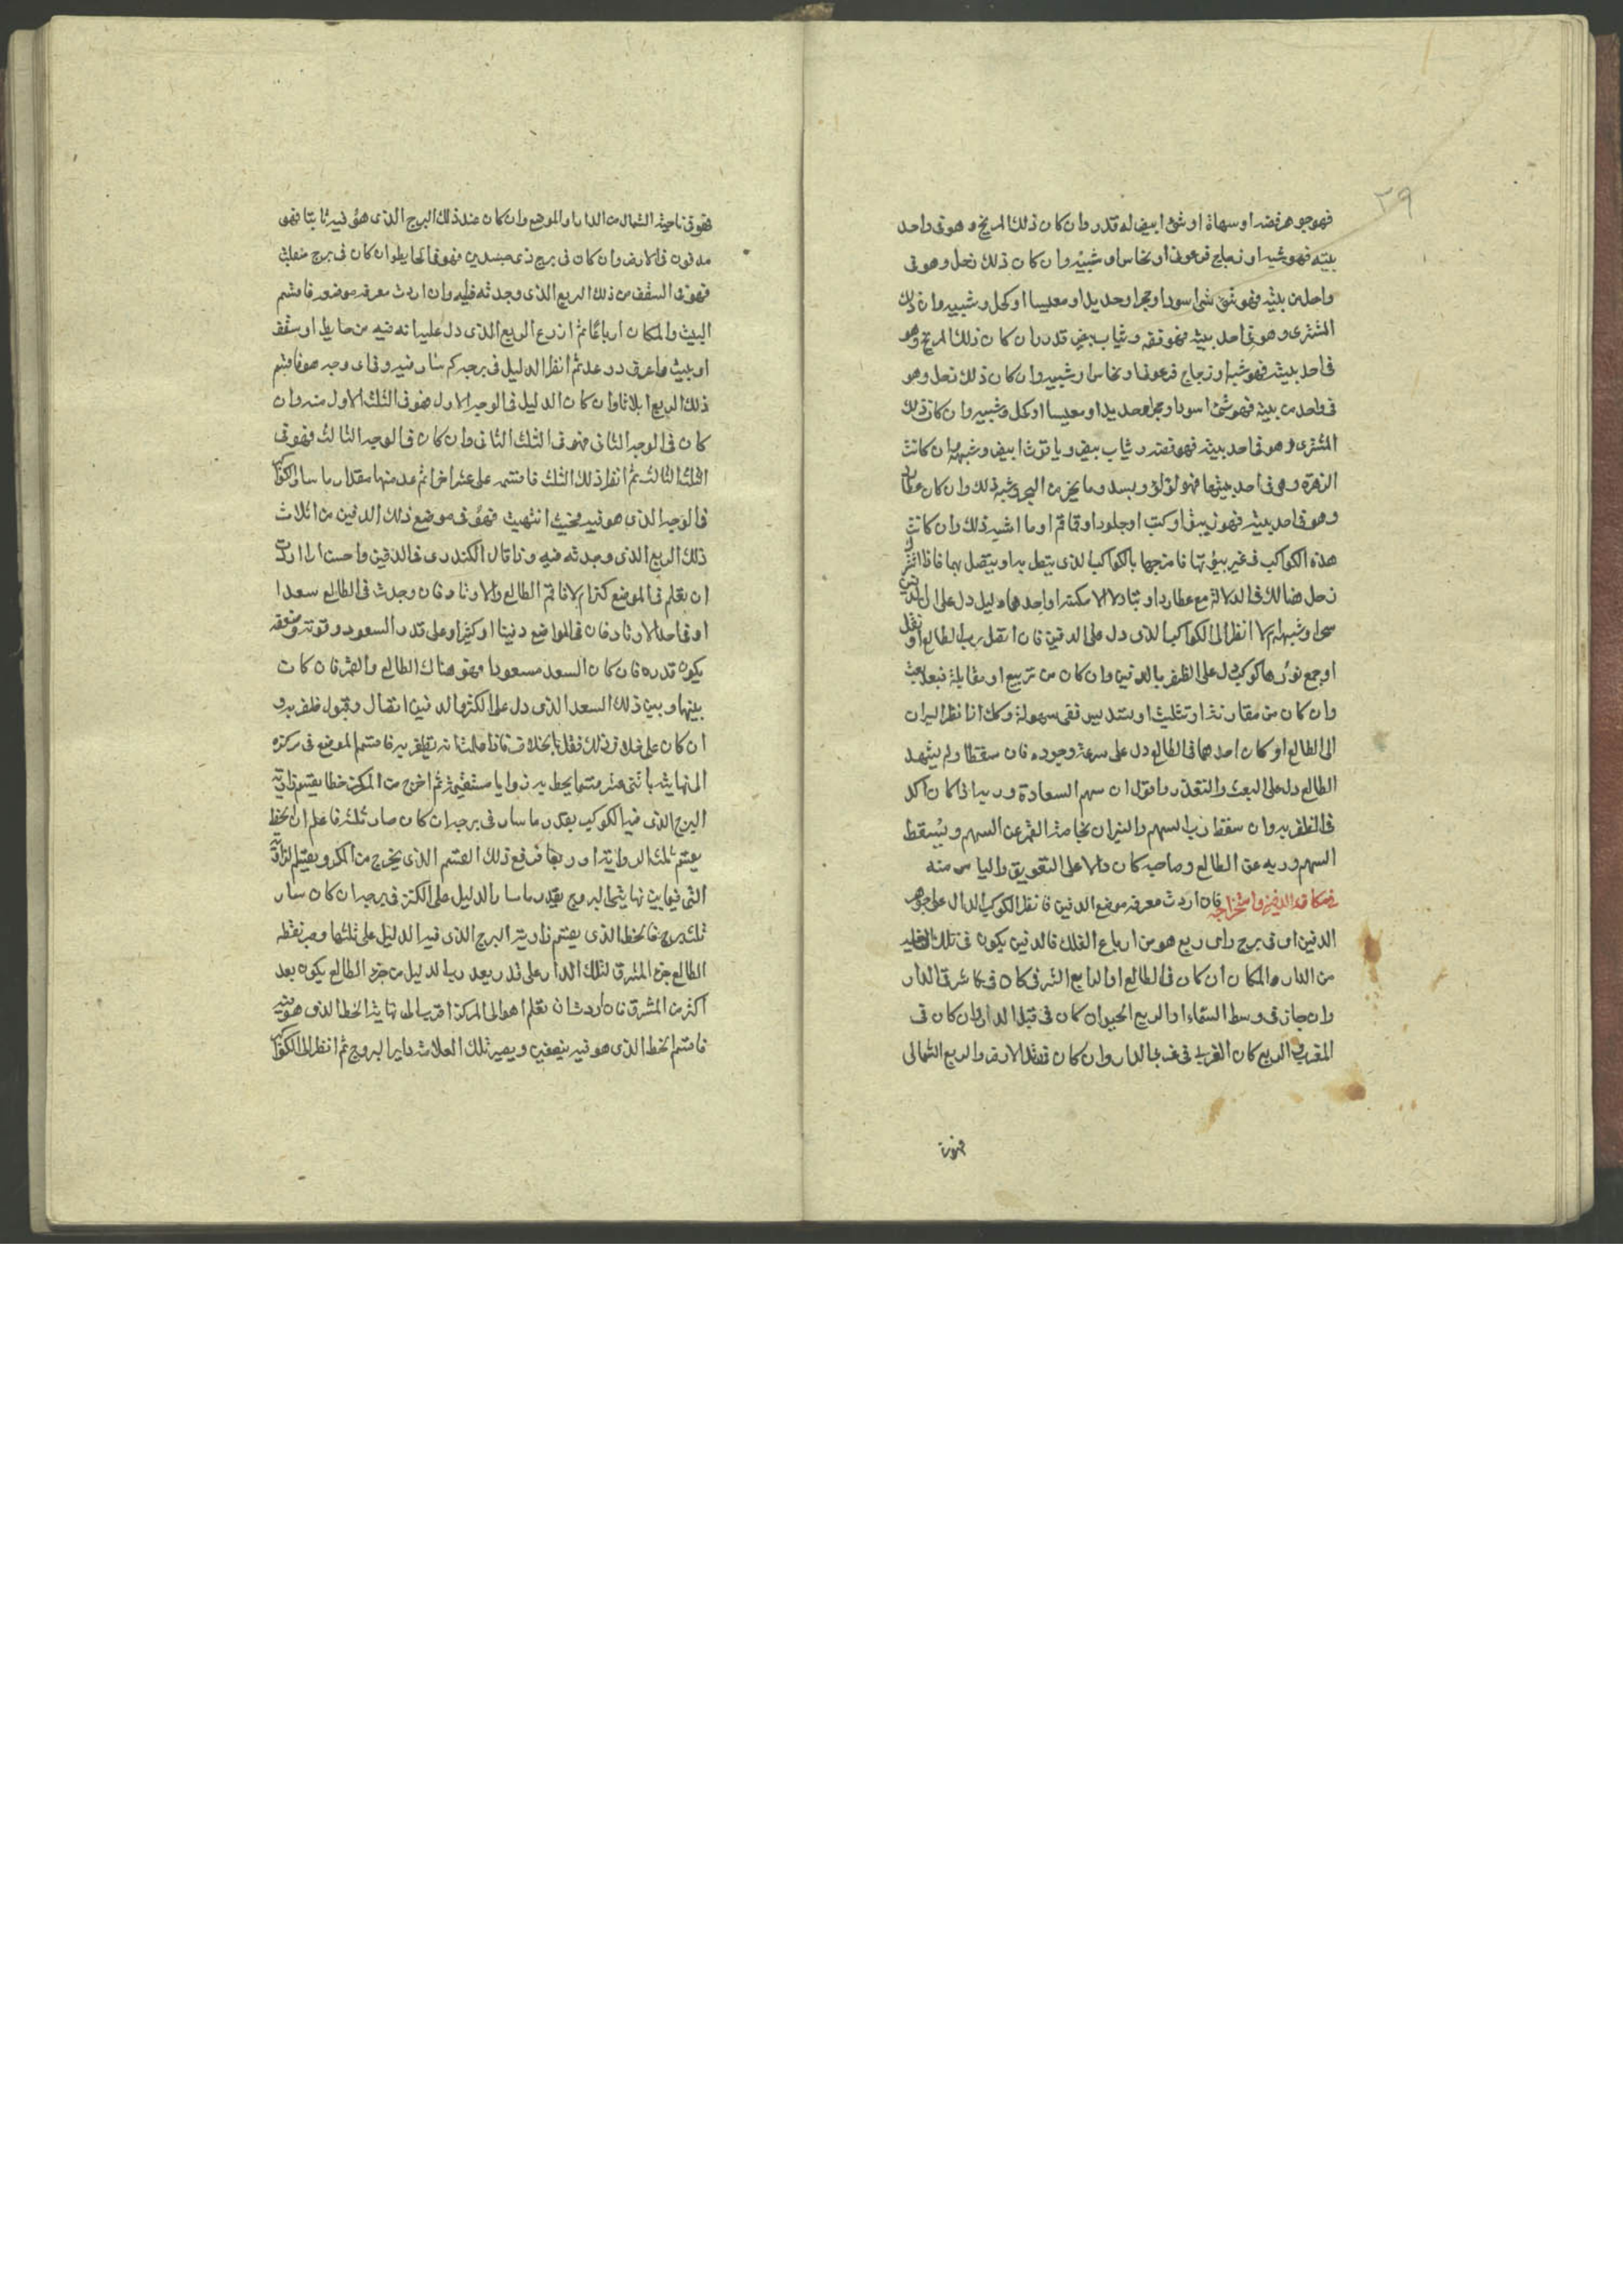 ٢٩
فهو جوهر فضه او سهاة او شئ ابيض له قدر وان كان ذلك المريخ وهو فى واحد
بيته فهو شبه او زجاج فرعونى او نحاس او شبيه وان كان ذلك زحل وهو فى
واحد من بيته فهو شئ اسود او حجر او حديد او او كحل و شبيه وان ذلك
المشترى وهو فى احد بيته فهو فقه وثياب بيض قدر وان كان ذلك المريخ وهو
فى احد بيته فهو شبه او زجاج فرعونى او نحاس او شبيه وان كان ذلك زحل وهو
فى واحد من بيته فهو شئ اسود او حجر حديد او او كحل وشبيه وان كان ذلك
المشترى وهو فى احد بيته فهو فضه وثياب بيض وياقوت ابيض وشبهه وان كانت
الزهرة وهى فى احد بيتها فهو لؤلؤ وبسد وما يخرج من البحر وشبه ذلك وان كان عطارد
وهو فى احد بيته فهو زيبق او كتب او جلود او قماقم او ما اشبه ذلك وان كانت
هذه الكواكب فى غير بيوتها فامزجها بالكواكب الذى يتصل به او يتصل بها فاذا اشترك
زحل هنالك فى الدلالة مع عطارد او تبادلا الامكنة او احدهما دليل دل على ان الدفين
سحرا وشبهه ثم انظر الى الكواكب الذى دل على الدفين فان اتصل برب الطالع او نقل
او جمع نورها كوكب دل على الظفر بالدفين وان كان من تربيع او مقابلة فبعد تعب
وان كان من مقارنة او تثليث او تسديس ففى سهولة وكك اذا نظر النيران
الى الطالع او كان احدهما فى الطالع دل على سرعة وجوده فان سقطا ولم يشهد
الطالع دل على البعث والتعذر واقول ان سهم السعادة وربه اذا كان اكد
فى الظفر به وان سقط رب السهم والنيران القمر عن السهم ويسقط
السهم وربه عن الطالع وصاحبه كان دالا على التعويق والياس منه
فى مكان الدفين واستخراجه فان اردت معرفة موضع الدفين فانظر الكوكب الدال على جوهر
الدفين اى فى برج واى ربع هو من ارباع الفلك فالدفين يكون فى تلك
من الدار والمكان ان كان فى الطالع او الرابع الشرقى كان فى شرق الدار
وان جاز فى وسط السماء او الربع الجنوبى كان فى قبلة الدار وان كان فى
المغرب والربع كان الغربى فى غرب الدار وان كان فى وتد الارض والربع الشمالى
فهو فى
فهو فى ناحية الشمال من الدار والموضع وان كان عند ذلك البرج الذى هو فيه ثابتا فهو
مدفون فى الارض وان كان فى برج ذى جسدين فهو فى الحايط وان كان فى برج منقلب
فهو فى السقف من ذلك الربع الذى وجدته فيه وان اردت معرفة موضعه فاقسم
البيت والمكان ارباعا ثم اذرع الربع الذى دل عليه انه فيه من حايط او سقف
او بيت واعرف ذرعه ثم انظر الدليل فى برجه كم سار فيه وفى اى وجه هو فاقسم
ذلك الربع اثلاثا وان كان الدليل فى الوجه الاول فهو فى الثلث الاول منه وان
كان فى الوجه الثانى فهو فى الثلث الثانى وان كان فى الوجه الثالث فهو فى
الثلث الثالث ثم انظر ذلك الثلث فاقسمه على عشر اجزا ثم عد منها مقدار ما سار الكوكب
فى الوجه الذى هو فيه فحيث انتهيت فهو فى موضع ذلك الدفين من اثلاث
ذلك الربع الذى وجدته فيه وقال الكندرى فى الدفين واحسن اذا اردت
ان تعلم فى الموضع كنز ام لا فاقم الطالع والاوتاد فان وجدت فى الطالع سعدا
او فى احد الاوتاد فان فى المواضع دفينا او كنزا وعلى قدر السعود وقوته وضعفه
يكون قدره فان كان السعد مسعودا فهو هناك الطالع والقمر فان كان
بينهما وبين ذلك السعد الذى دل على الكنز والدفين اتصال وقبول ظفر به و
ان كان على خلاف ذلك فقل بالخلاف فاذا علمت انه تظفر به فاقسم الموضع فى مركزه
الى نهايته باثنى عشر قسما يحيط به زوايا مستقيمة ثم اخرج من المركز خطا يقسم زاوية
البرج الذى فيه الكوكب بقدر ما سار فى برجه ان كان صار ثلثه فاعلم ان الخط
يقسم ثلث الزاوية او ربعها فربع ذلك القسم الذى يخرج من المركز ويقسم الزاوية
التى فيما بين نهايتى البروج بقدر ما سار الدليل على الكنز فى برجه ان كان سار
ثلث برج فالخط الذى يقسم زاوية البرج الذى فيه الدليل على ثلثها وصر نقطة
الطالع جزء المشرق لتلك الدار على قدر بعد رب الدليل من جزء الطالع يكون بعد
اكثر من المشرق فان اردت ان تعلم اهو الى المركز اقرب ام الى نهاية الخط الذى هو فيه
فاقسم الخط الذى هو فيه بنصفين ويصير تلك العلامات داير البروج ثم انظر الى الكوكب